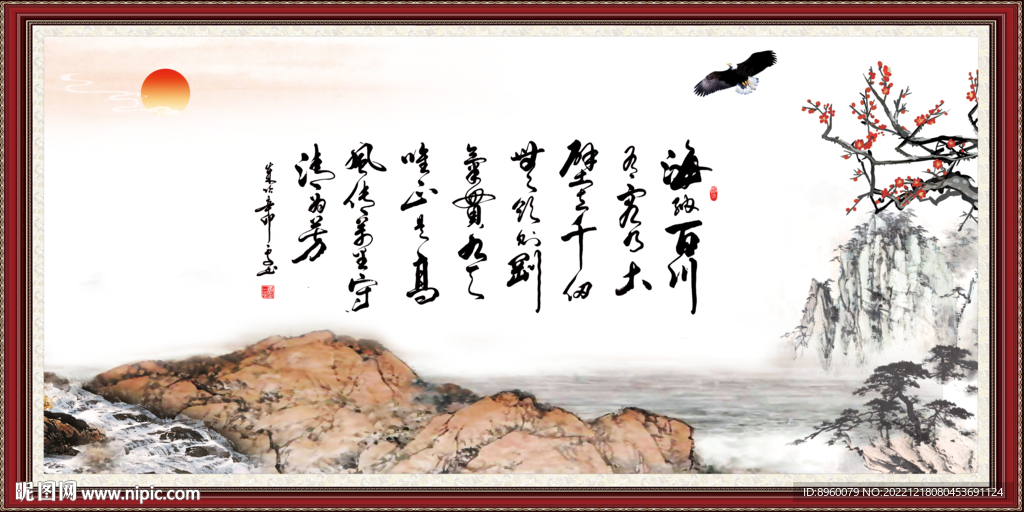 海納百川
有容乃大
壁立千仞
無欲则剛
氣貫九天
唯正是高
風传萬里守
清为芳
昵图网 www.nipic.com
ID:8960079 NO:20221218080453691124